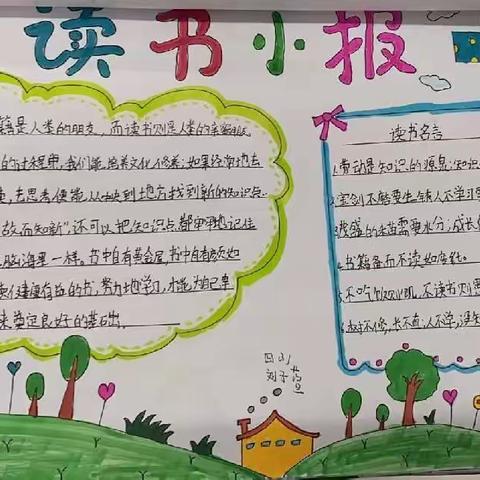 读书小报
籍是人类的朋友，而读书则是人类的
的过程中，我们能培养文化修养；如果经常地去
去思考便能从中找到地方找到新的知识点
故而知新”，还可以把知识点都牢牢地记住
脑海里一样。书中自有黄金屋，书中自有颜如
健康有益的书，努力地学习，才能为自己
来奠定良好的基础。
四(1)
刘子菡
读书名言
劳动是知识的源泉；知识
宝剑不磨要生锈；人不学习要
茂盛的禾苗需要水分；成长
书籍备而不读如废纸。
不吃饭则饥，不读书则愚
树不修，长不直；人不学，没知